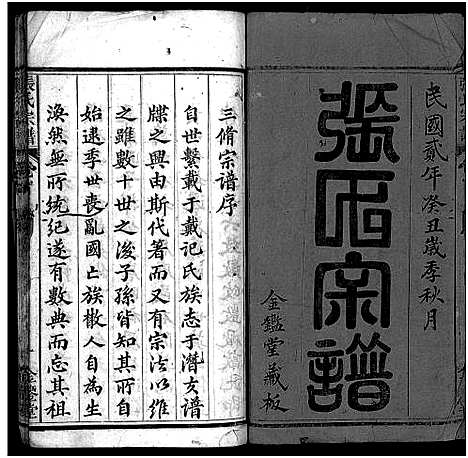 民國貳年癸丑歲季秋月
張氏宗譜
金鑑堂藏板
三脩宗谱序
自世繫載于戴记氏族志于潛友谱
牒之興由斯代著而然有宗法以維
之雖數十世之後子孫皆知其所自
始逮季世喪亂國亡族散人自為生
渙然無所統纪遂有數典而忘其祖
張氏宗譜
金鑑堂